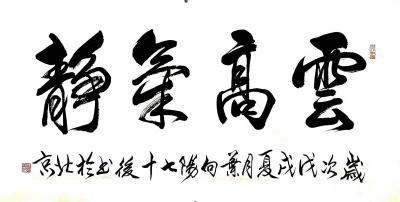 雲高氣靜
歲次戊戌夏月葉向陽七十後書於北京